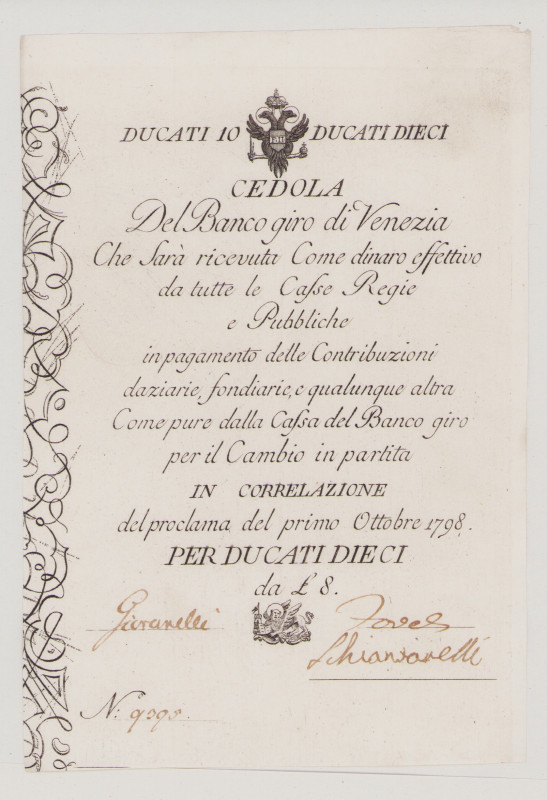 DUCATI 10 DUCATI DIECI
CEDOLA
Del Banco giro di Venezia
Che Sarà ricevuta Come dinaro effettivo
da tutte le Caſse Regie
e Pubbliche
in pagamento delle Contribuzioni
daziarie, fondiarie, e qualunque altra
Come pure dalla Caſsa del Banco giro
per il Cambio in partita
IN CORRELAZIONE
del proclama del primo Ottobre 1798.
PER DUCATI DIECI
da £ 8.
Giovanelli
N: